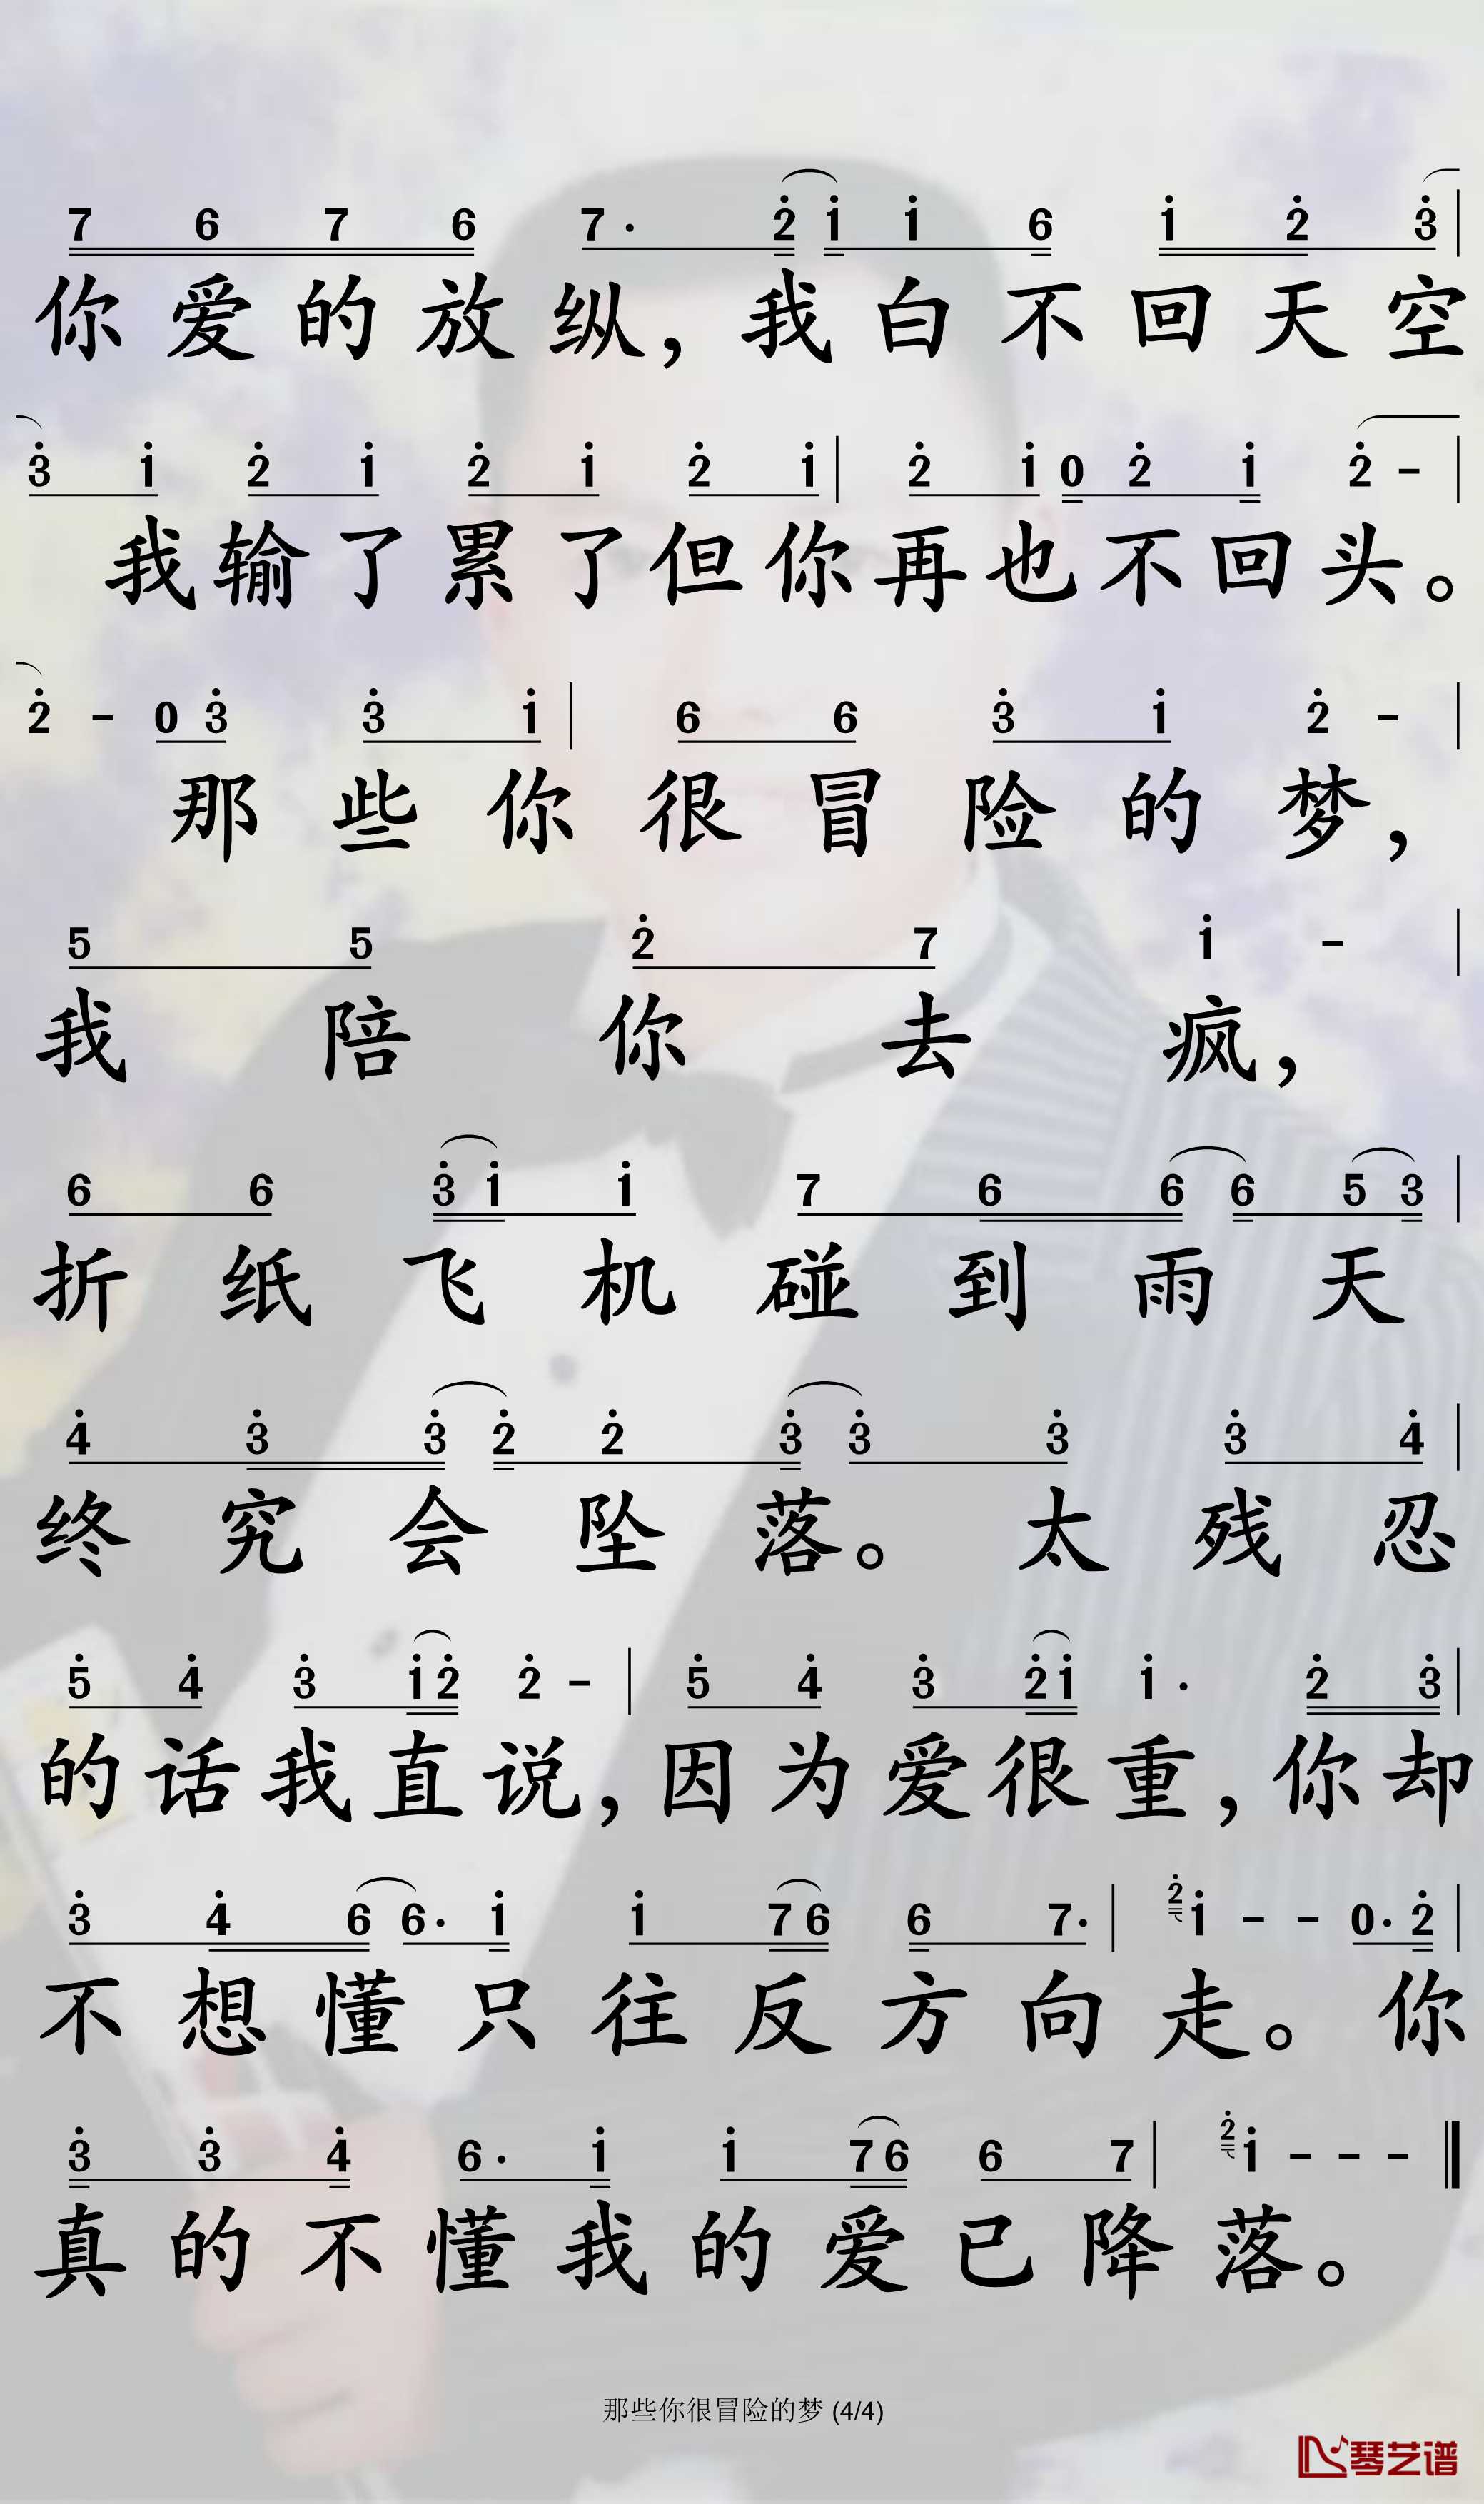 7 6 7 6 7· 2 1 1 6 1 2 3
你爱的放纵，我白不回天空
3 1 2 1 2 1 2 1 2 1 0 2 1 2 -
我输了累了但你再也不回头。
2 - 0 3 3 1 6 6 3 1 2 -
那些你很冒险的梦，
5 5 2 7 1 -
我陪你去疯，
6 6 3 1 1 7 6 6 6 5 3
折纸飞机碰到雨天
4 3 3 2 2 3 3 3 3 4
终究会坠落。太残忍
5 4 3 1 2 2 - 5 4 3 2 1 1· 2 3
的话我直说，因为爱很重，你却
3 4 6 6· 1 1 7 6 6 7· 2 1 - - 0· 2
不想懂只往反方向走。你
3 3 4 6· 1 1 7 6 6 7 2 1 - - -
真的不懂我的爱已降落。
那些你很冒险的梦 (4/4)
琴艺谱